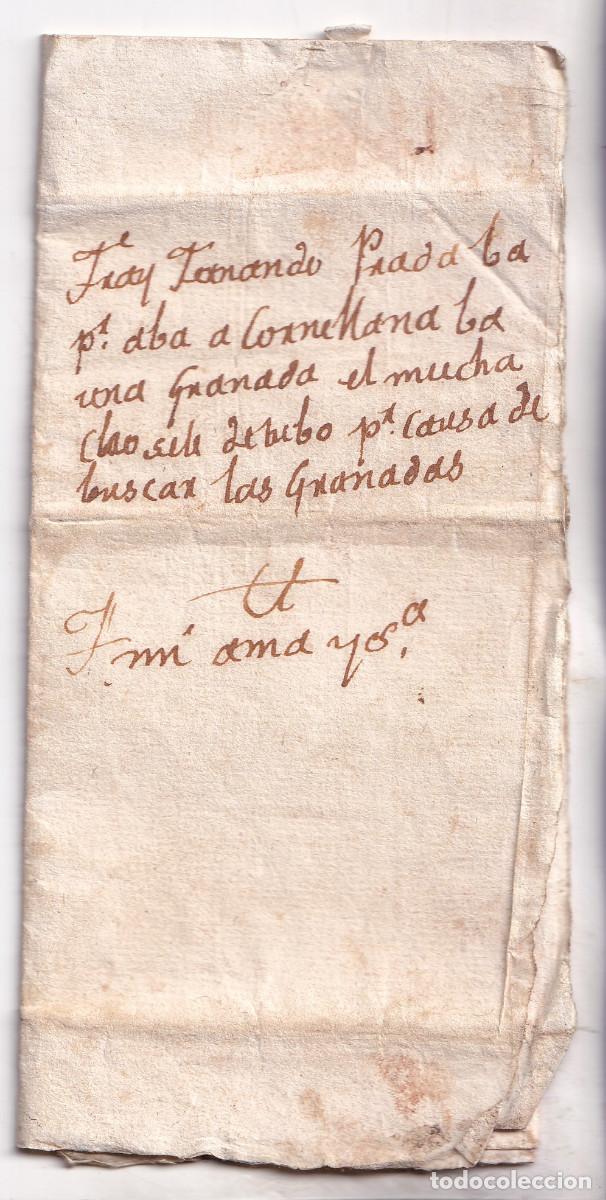 Fray Fernando Prada ba
pr. aba a Cornellana ba
una Granada el mucha
cho sele detubo pr. causa de
buscar las Granadas
mi ama y sa.
todocoleccion
todocoleccion.net